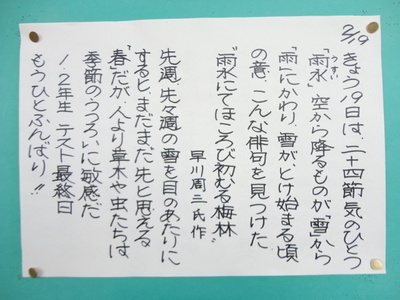 2/19
きょう19日は、二十四節気のひとつ
「雨水」うすい 空から降るものが「雪」から
「雨」にかわり、雪がとけ始まる頃
の意、こんな俳句を見つけた
"雨水にてほころび初むる梅林"
早川周三氏作
先週、先々週の雪を目のあたりに
すると、まだまだ先と思える
「春」だが、人より草木や虫たちは
季節のうつろいに敏感だ
1、2年生 テスト最終日
もうひとふんばり!!